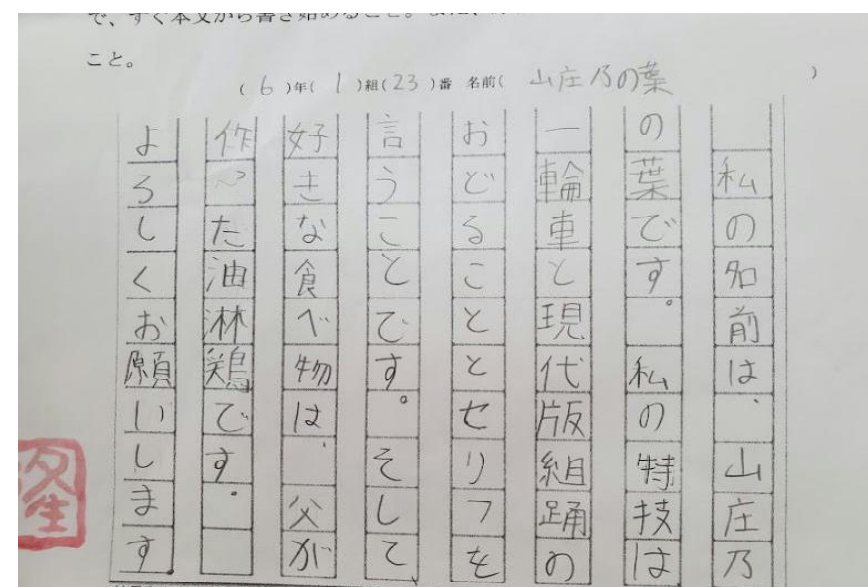 こと。
(6)年(1)組(23)番 名前(山庄乃の葉)
私の名前は、山庄乃
の葉です。私の特技は
一輪車と現代版組踊の
おどることとセリフを
言うことです。そして、
好きな食べ物は、父が
作った油淋鶏です。
よろしくお願いします。